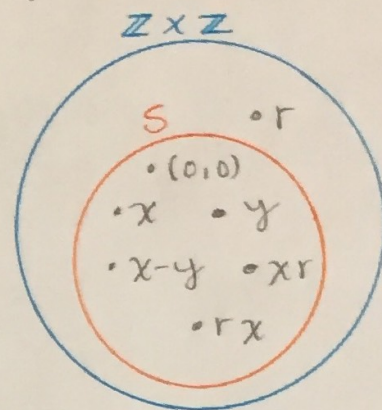 ℤ × ℤ
S
• r
• (0,0)
• x • y
• x-y • xr
• r x